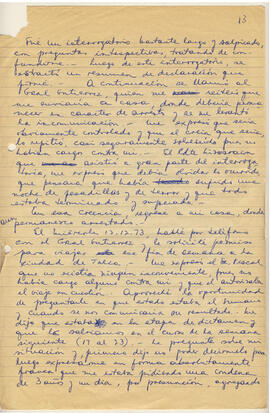 13
Fue un interrogatorio bastante largo y salpicado,
con preguntas introspectivas, tratando de con-
fundirme.- Luego de este interrogatorio, se
extractó un resumen de declaración que
firmé.- A continuación se llamó al
Gral Gutierrez, quien me reiteró que
me enviaría a casa, donde debería perma-
necer en carácter de arresto y se me levantó
la incomunicación.- Me expresó que sería
nuevamente controlado y que el creía que sería,
lo repitió casi seguramente sobreseído pues no
había cargo contra mí.- El
asistió a gran parte del interroga
torio, me expresó que debía olvidar lo ocurrido
que pensara que había sufrido una
noche de pesadillas y de terror y que todo
estaba terminado y superado.-
En esa creencia, regresé a mi casa, donde
permanecí arrestado
El Miércoles 12.12.73, hablé por teléfono
con el Gral Gutierrez, le solicité permiso
para viajar ese fin de semana a la
ciudad de Talca.- Me expresó el Fiscal
que no existía ningún inconveniente, pues no
había cargo alguno contra mí y que él autorizaba
el viaje en cuestión. Aproveché la oportunidad
de preguntarle en qué estado estaba el sumario
y cuando se nos comunicaría su resultado. Me
dijo que estaba en la etapa de dictamen,
que lo sabríamos en el curso de la semana
siguiente (17 al 23).- Le pregunté sobre mi
situación y primero dijo no poder decírmelo pero
luego expresarme en forma absolutamente
franca que me estaba pidiendo una condena
de 3 años y un día, por presunción, agregando